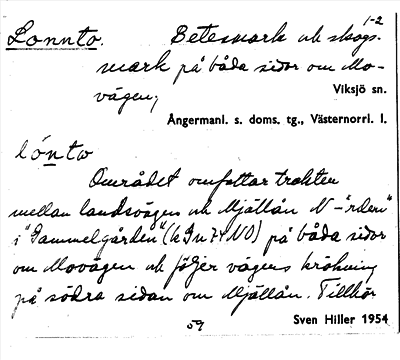 1-2
Lonnto. Betesmark och skogs-
mark på båda sidor om Mo-
vägen;
Viksjö sn.
Ångermanl. s. doms. tg., Västernorrl. l.
lónto
Området omfattar trakten
mellan landsvägen och Mjällån N
i "Gammelgården" på båda sidor
om Movägen och följer vägens krökning
på södra sidan om Mjällån. Tillhör
59
Sven Hiller 1954